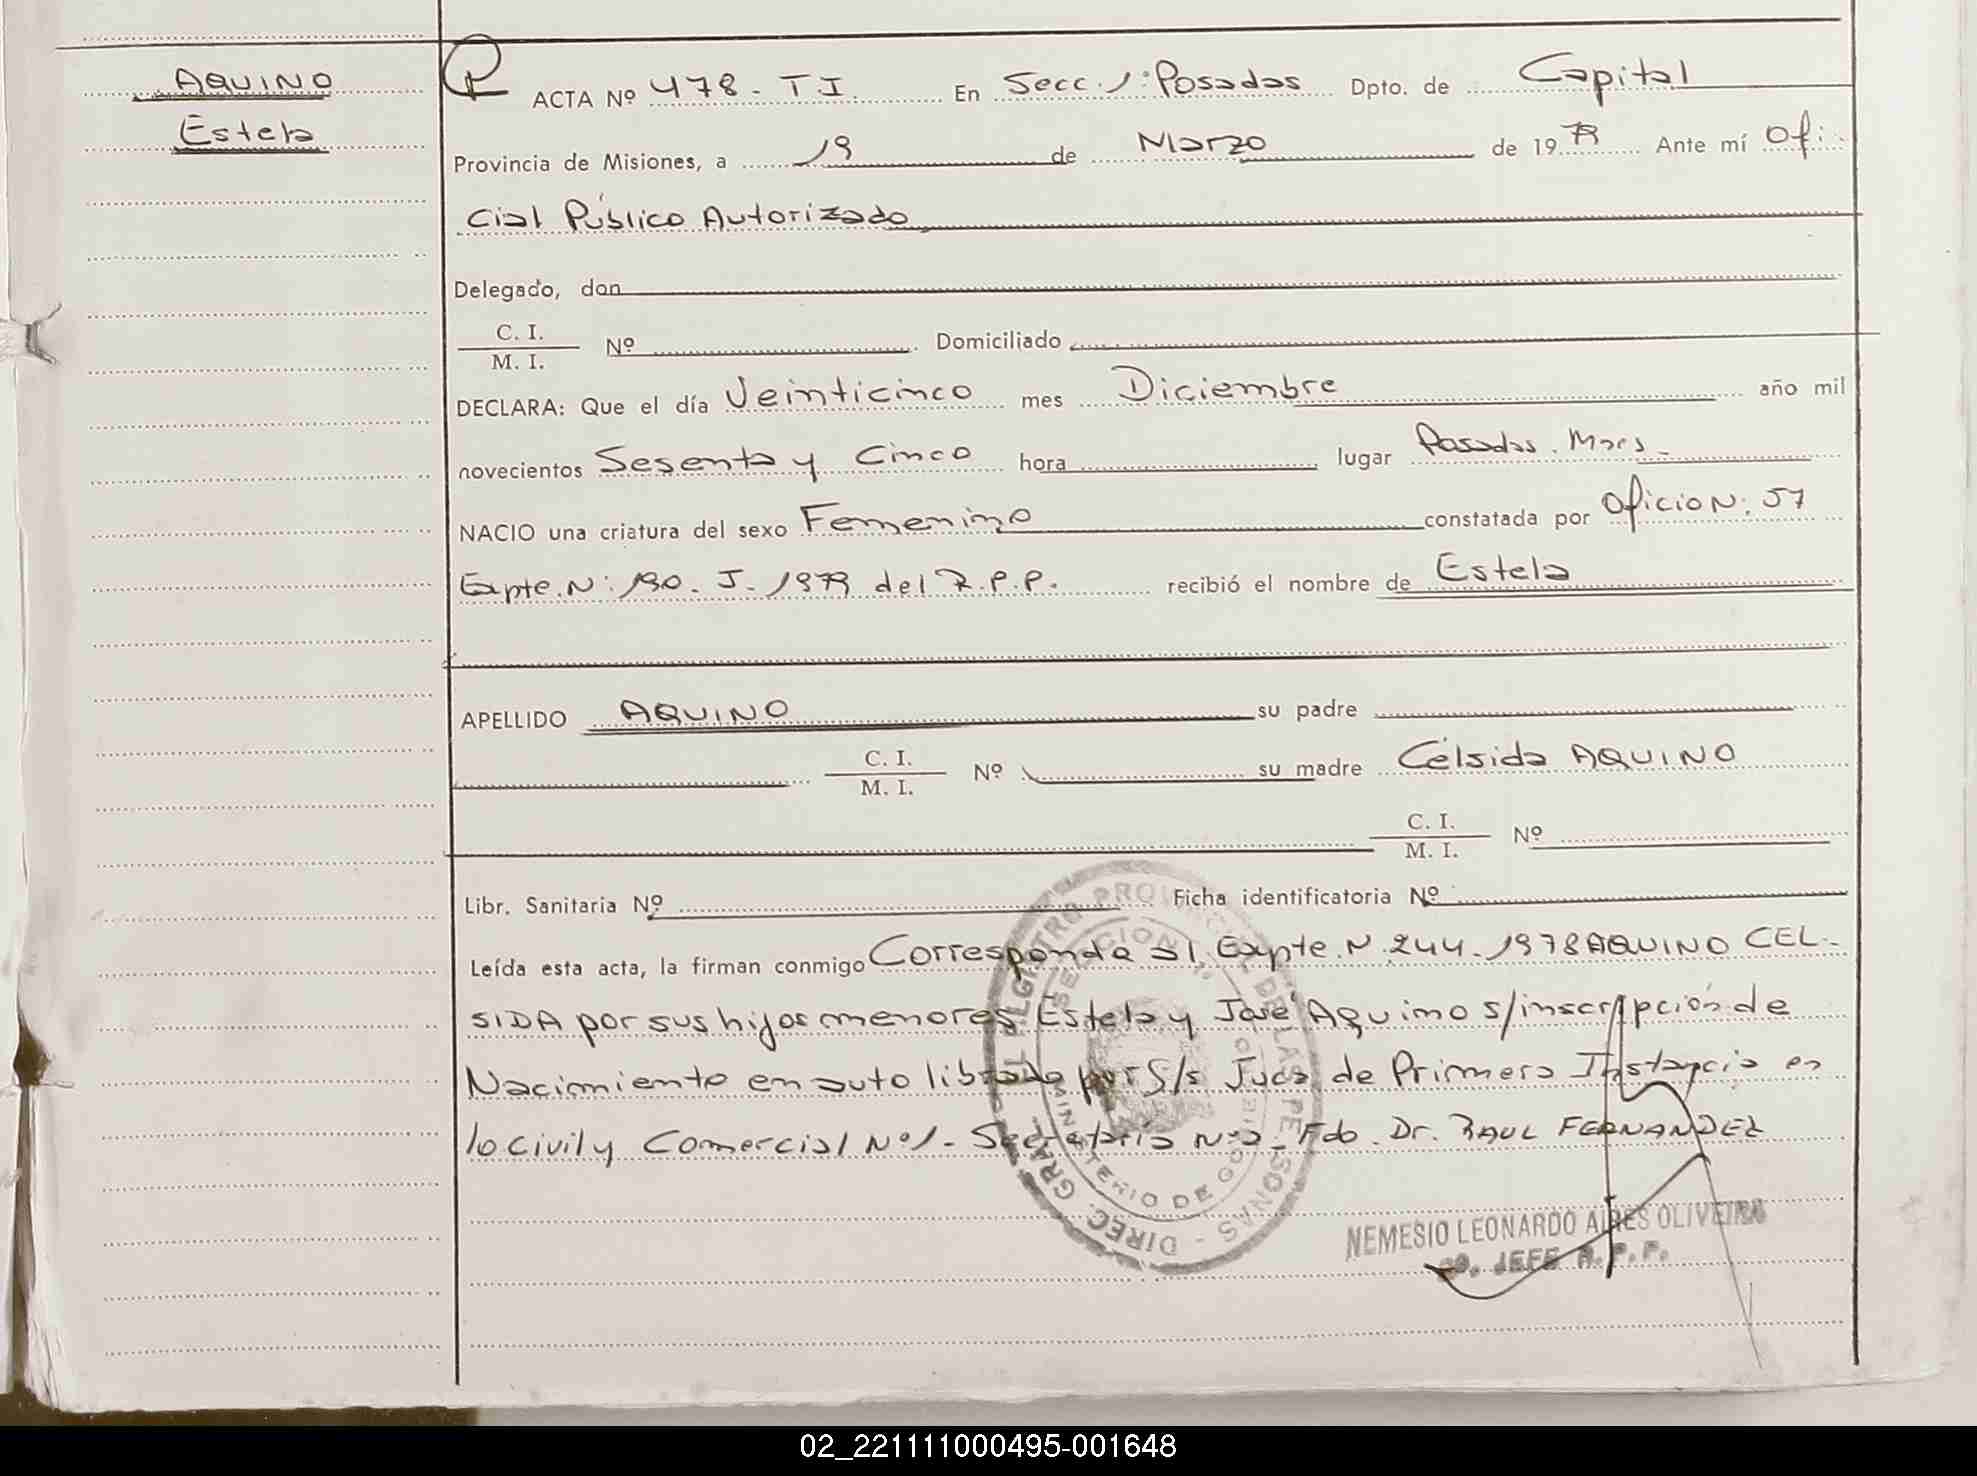 AQUINO
Estela
ACTA Nº 478 - T I. En Secc. 1: Posadas Dpto. de Capital
Provincia de Misiones, a 19 de Marzo de 1979 Ante mí Ofi-
cial Público Autorizado
Delegado, don
C. I.
M. I.
Nº Domiciliado
DECLARA: Que el día Veinticinco mes Diciembre año mil
novecientos Sesenta y Cinco hora lugar Posadas. Mnes
NACIO una criatura del sexo Femenino constatada por Oficio N: 57
Expte. N: 190. J - 1979 del R.P.P. recibió el nombre de Estela
APELLIDO AQUINO su padre
C. I.
M. I.
Nº su madre Célsida AQUINO
C. I.
M. I.
Nº
Libr. Sanitaria Nº Ficha identificatoria Nº
Leída esta acta, la firman conmigo Corresponde al Expte. N. 244 - 1978 AQUINO CEL-
SIDA por sus hijos menores Estela y José Aquino s/inscripción de
Nacimiento en auto librado por S/s Juez de Primera Instancia en
lo Civil y Comercial Nº 1 - Secretaría Fdo. Dr. RAUL FERNANDEZ
DIREC. GRAL. REGISTRO PROVINCIAL DE LAS PERSONAS
SECCION 1º
MINISTERIO DE GOBIERNO
NEMESIO LEONARDO AIRES OLIVEIRA
JEFE R. P. P.
02_221111000495-001648